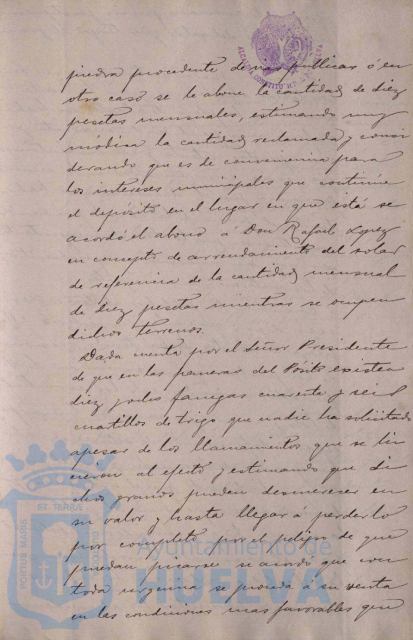 piedra procedente de vías publicas ó en
otro caso se le abone la cantidad de diez
pesetas mensuales, estimando muy
módica la cantidad reclamada, y consi
derando que es de conveniencia para
los intereses municipales que continúe
el depósito en el lugar en que está se
acordó el abono á Don Rafael Lopez
en concepto de arrendamiento del solar
de referencia de la cantidad mensual
de diez pesetas mientras se ocupen
dichos terrenos.
Dada cuenta por el Señor Presidente
de que en las paneras del Pósito existen
diez y ocho fanegas cuarenta y seis
cuartillos de trigo que nadie ha solicitado
apesar de los llamamientos que se hi
cieron al efecto y estimando que di
chos granos pueden desmerecer en
su valor y hasta llegar á perderlo
por completo por el peligro de que
puedan picarse se acordó que con
toda urgencia se proceda á su venta
en las condiciones mas favorables que
Ayuntamiento de
HUELVA
PORTUS MARIS
ET TERRÆ